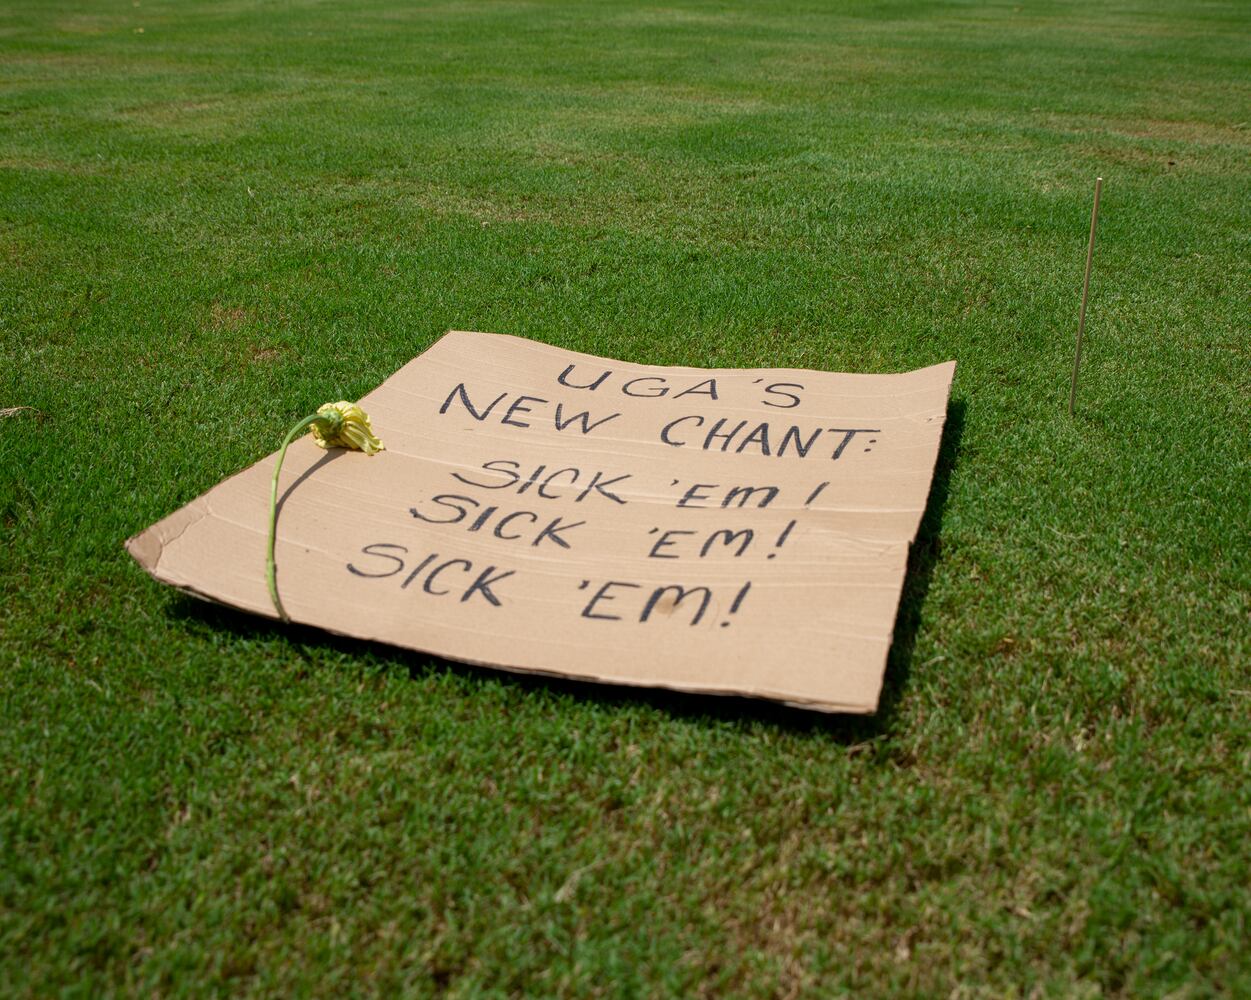 UGA'S
NEW CHANT:
SICK 'EM!
SICK 'EM!
SICK 'EM!